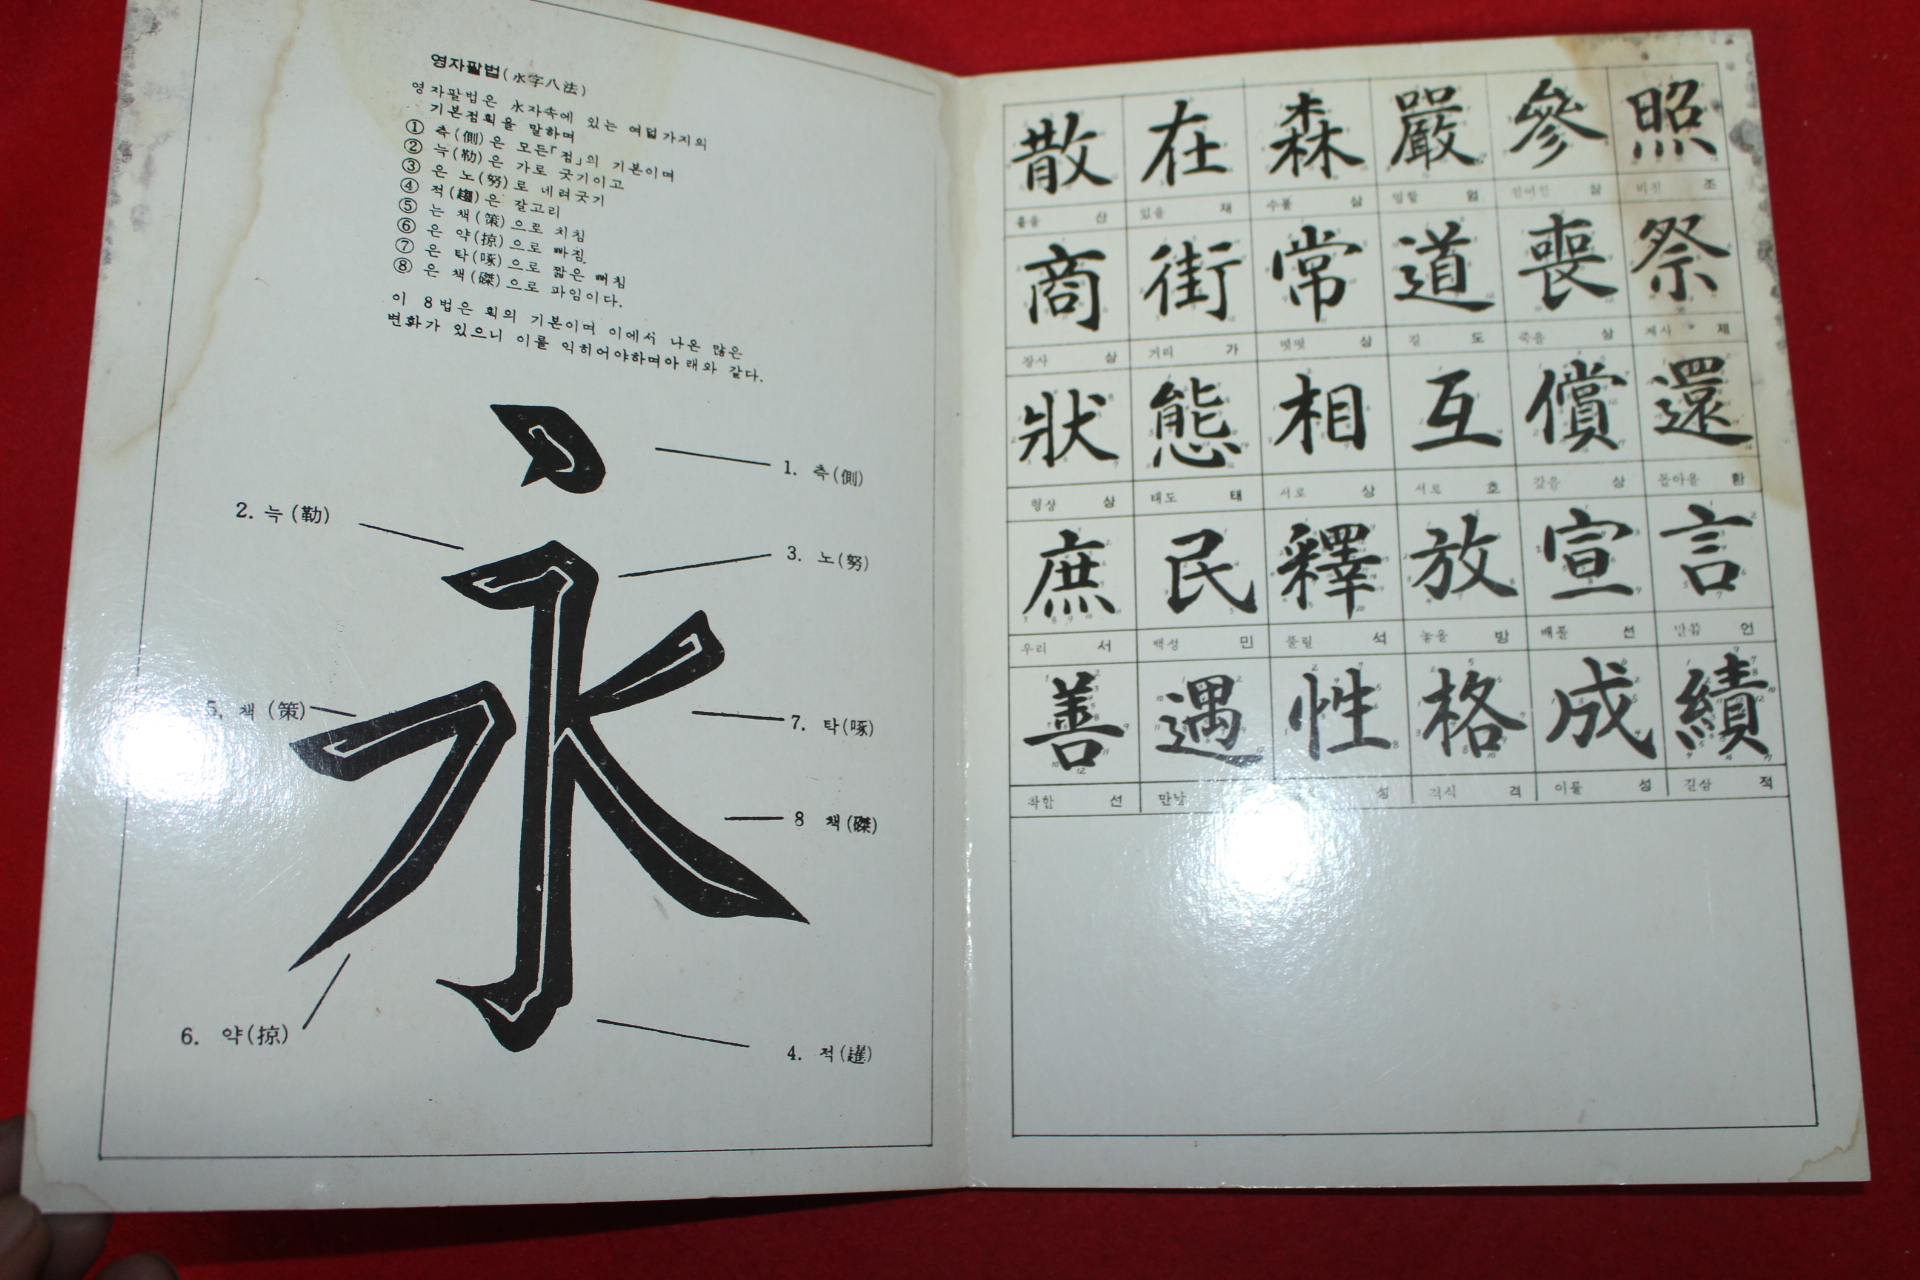 영자팔법(永字八法)
영자팔법은 永자속에 있는 여덟가지의
기본점획을 말하며
① 측(側)은 모든「점」의 기본이며
② 늑(勒)은 가로 긋기이고
③ 은 노(努)로 네려긋기
④ 적(趯)은 갈고리
⑤ 는 책(策)으로 치침
⑥ 은 약(掠)으로 빠짐
⑦ 은 탁(啄)으로 짧은 삐침
⑧ 은 책(磔)으로 파임이다.
이 8법은 획의 기본이며 이에서 나온 많은
변화가 있으니 이를 익히어야하며아래와 같다.
1. 측(側)
2. 늑(勒)
3. 노(努)
5. 책(策)
7. 탁(啄)
8 책(磔)
6. 약(掠)
4. 적(趯)
散 在 森 嚴 參 照
흩을 산 있을 재 수풀 삼 엄할 엄 참여할 삼 비칠 조
商 街 常 道 喪 祭
장사 상 거리 가 떳떳 상 길 도 죽을 상 제사 제
狀 態 相 互 償 還
형상 상 태도 태 서로 상 서로 호 갚을 상 돌아올 환
庶 民 釋 放 宣 言
우리 서 백성 민 풀릴 석 놓을 방 배풀 선 말씀 언
善 遇 性 格 成 績
착할 선 만날 성 격식 격 이룰 성 길삼 적